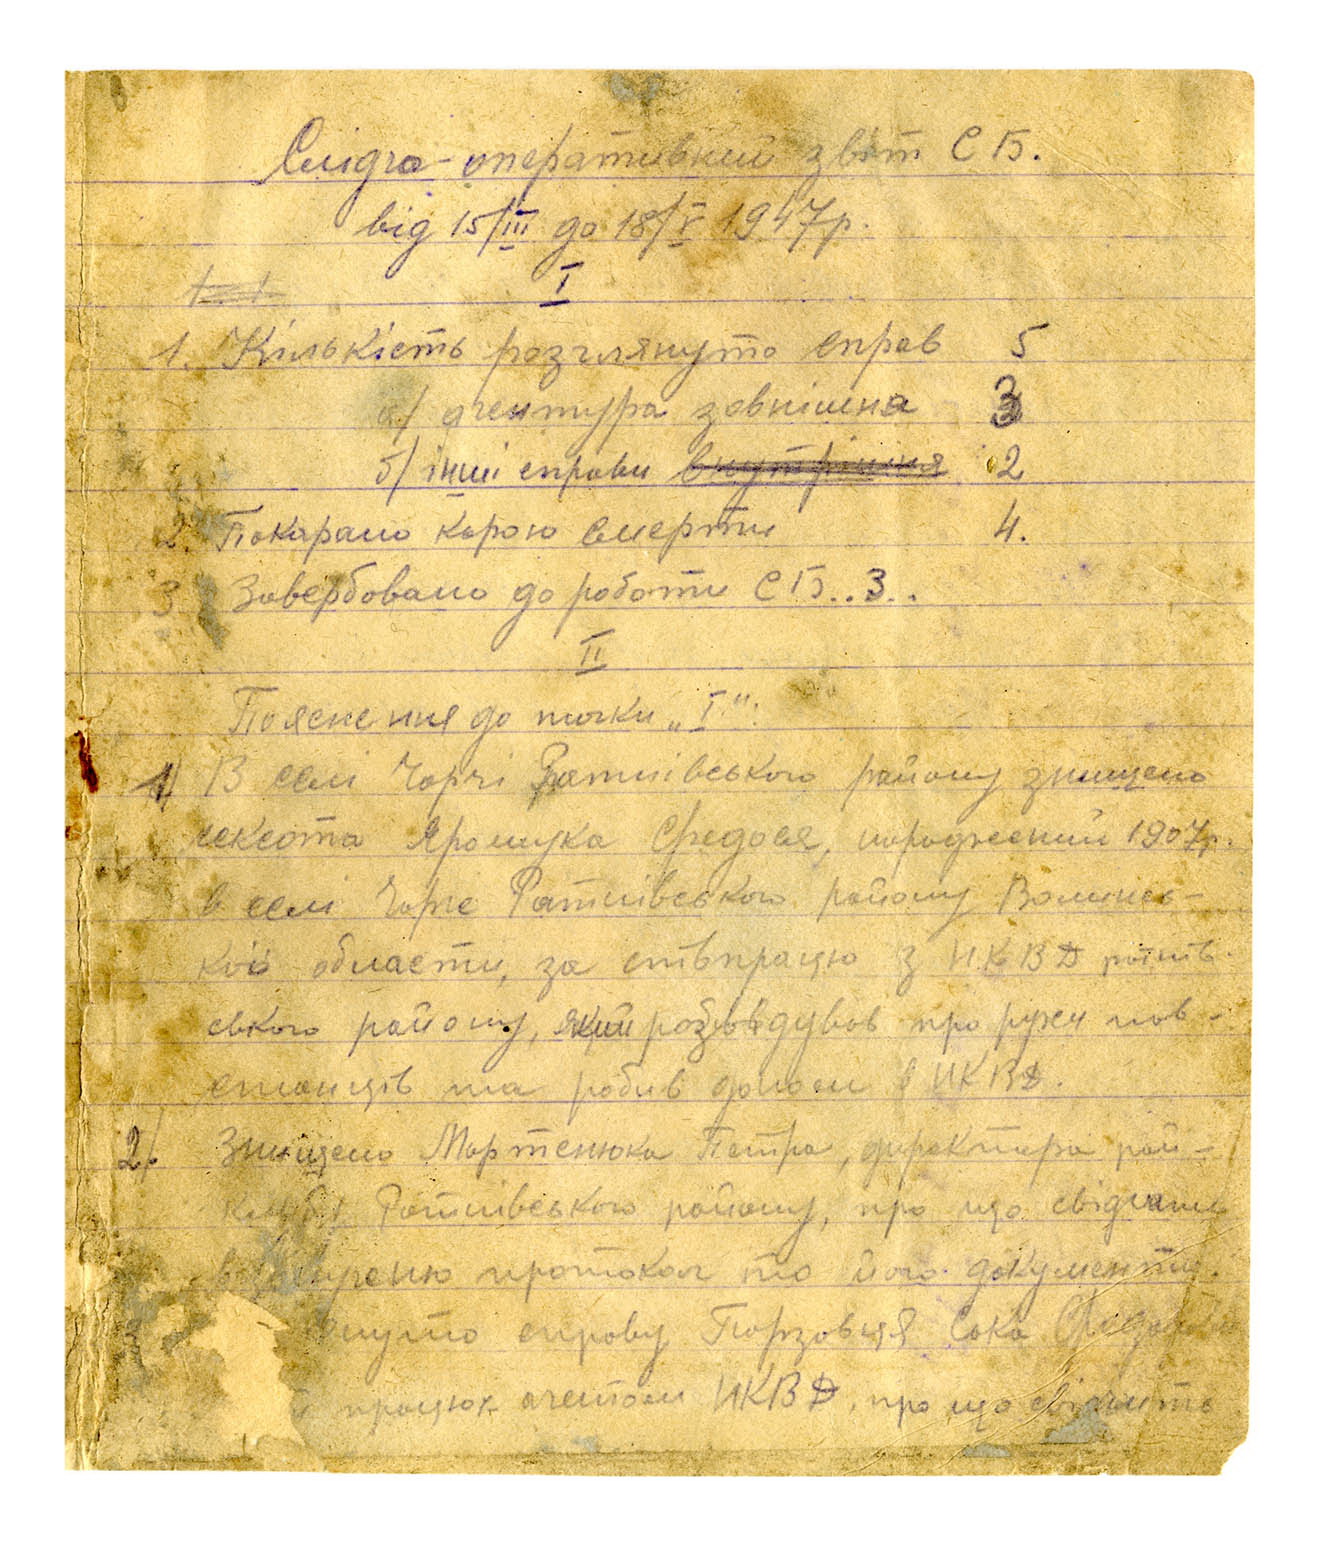 Слідчо-оперативний звіт СБ.
від 15/III до 18/V 1947р.
I
1. Кількість розглянуто справ 5
а/ агентура зовнішня 3
б/ інші справи внутрішня 2
2. Покарано карою смерти 4.
3. Завербовано до роботи СБ..3..
II
Пояснення до точки „I“:
1/ В селі Чорчі Ратнівського району знищено
сексота Ярощука Федося, народжений 1907р.
в селі Чорче Ратнівського району Волинсь-
кої области, за співпрацю з НКВД ратнів-
ського району, який розвідував про рухи пов-
станців та робив донос в НКВД.
2/. Знищено Мартенюка Петра, директора рай-
клубу Ратнівського району, про що свідчать
протокол та його документи.
справу Сака
працює агентом НКВД, про що свідчить